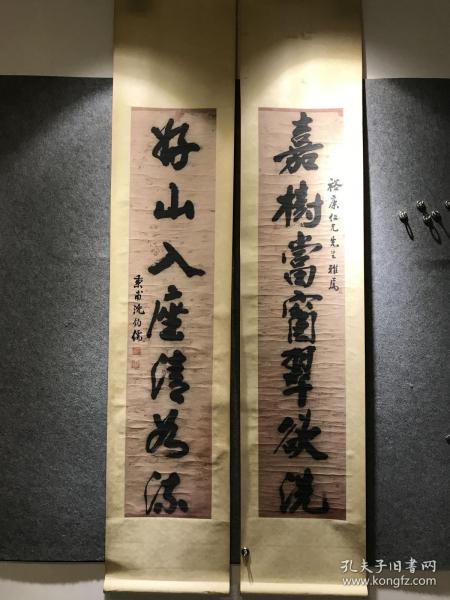 嘉樹當窗翠欲洗
裕康仁兄先生雅属
好山入座清若流
秉甫沈鈞儒
孔夫子旧书网
www.kongfz.com